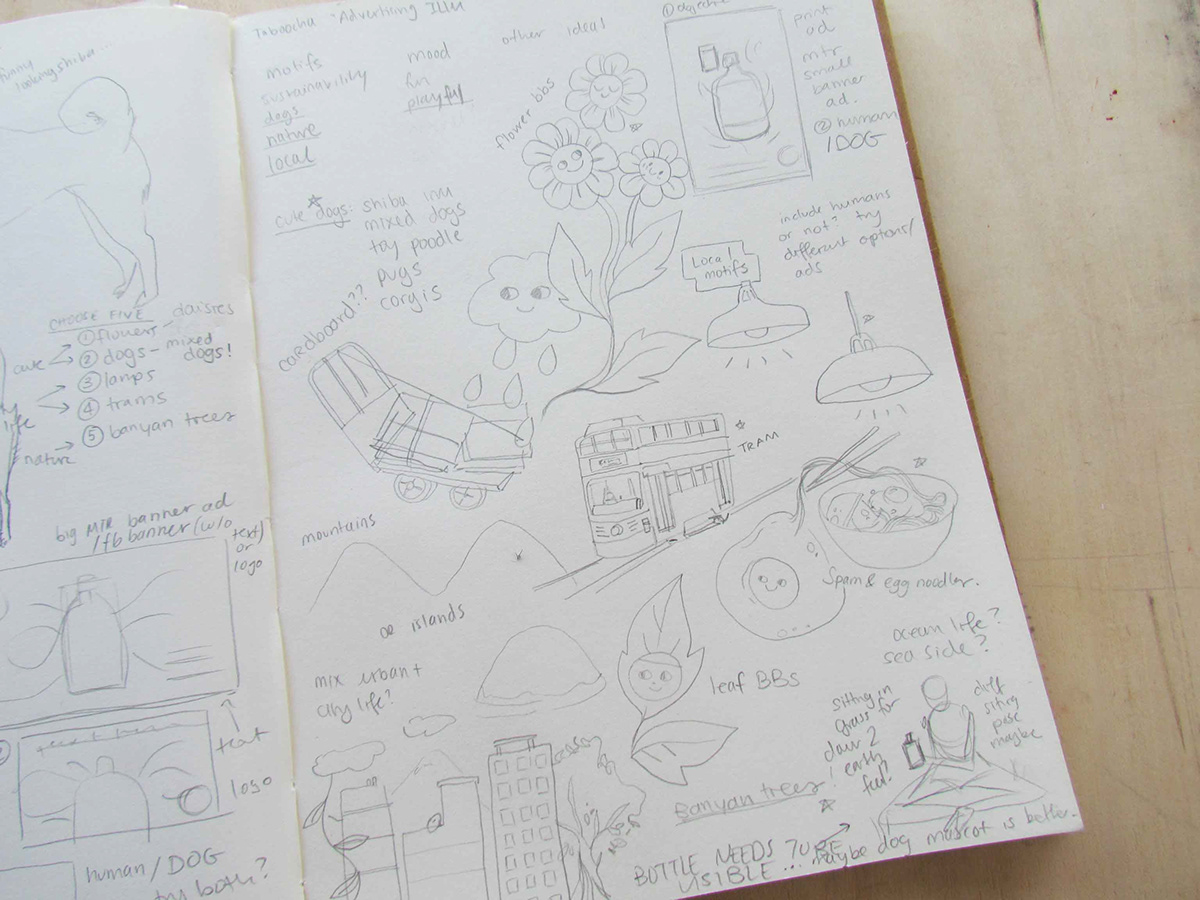 funny
looking shiba...
CHOOSE FIVE
① flowers - daisies
② dogs - mixed
dogs!
③ lamps
④ trams
⑤ banyan trees
cute
life
nature
big MTR banner ad
/fb banner (w/o
text) or
logo
text
logo
human/DOG
try both?
Taboocha - Advertising Illu
motifs
sustainability
dogs
nature
local
mood
fun
playful
other ideas
flower bbs
① objective
print
ad
mtr
small
banner
ad.
② human
/DOG
cute dogs: shiba inu
mixed dogs
toy poodle
pugs
corgis
include humans
or not? try
different options/
ads
Local
motifs
cardboard??
TRAM
mountains
Spam & egg noodles.
or islands
mix urban +
city life?
leaf BBs
ocean life?
sea side?
sitting in
grass for
down 2
earth
feel?
diff
sitting
pose
maybe
Banyan trees!
BOTTLE NEEDS TO BE
VISIBLE...
maybe dog mascot is better.